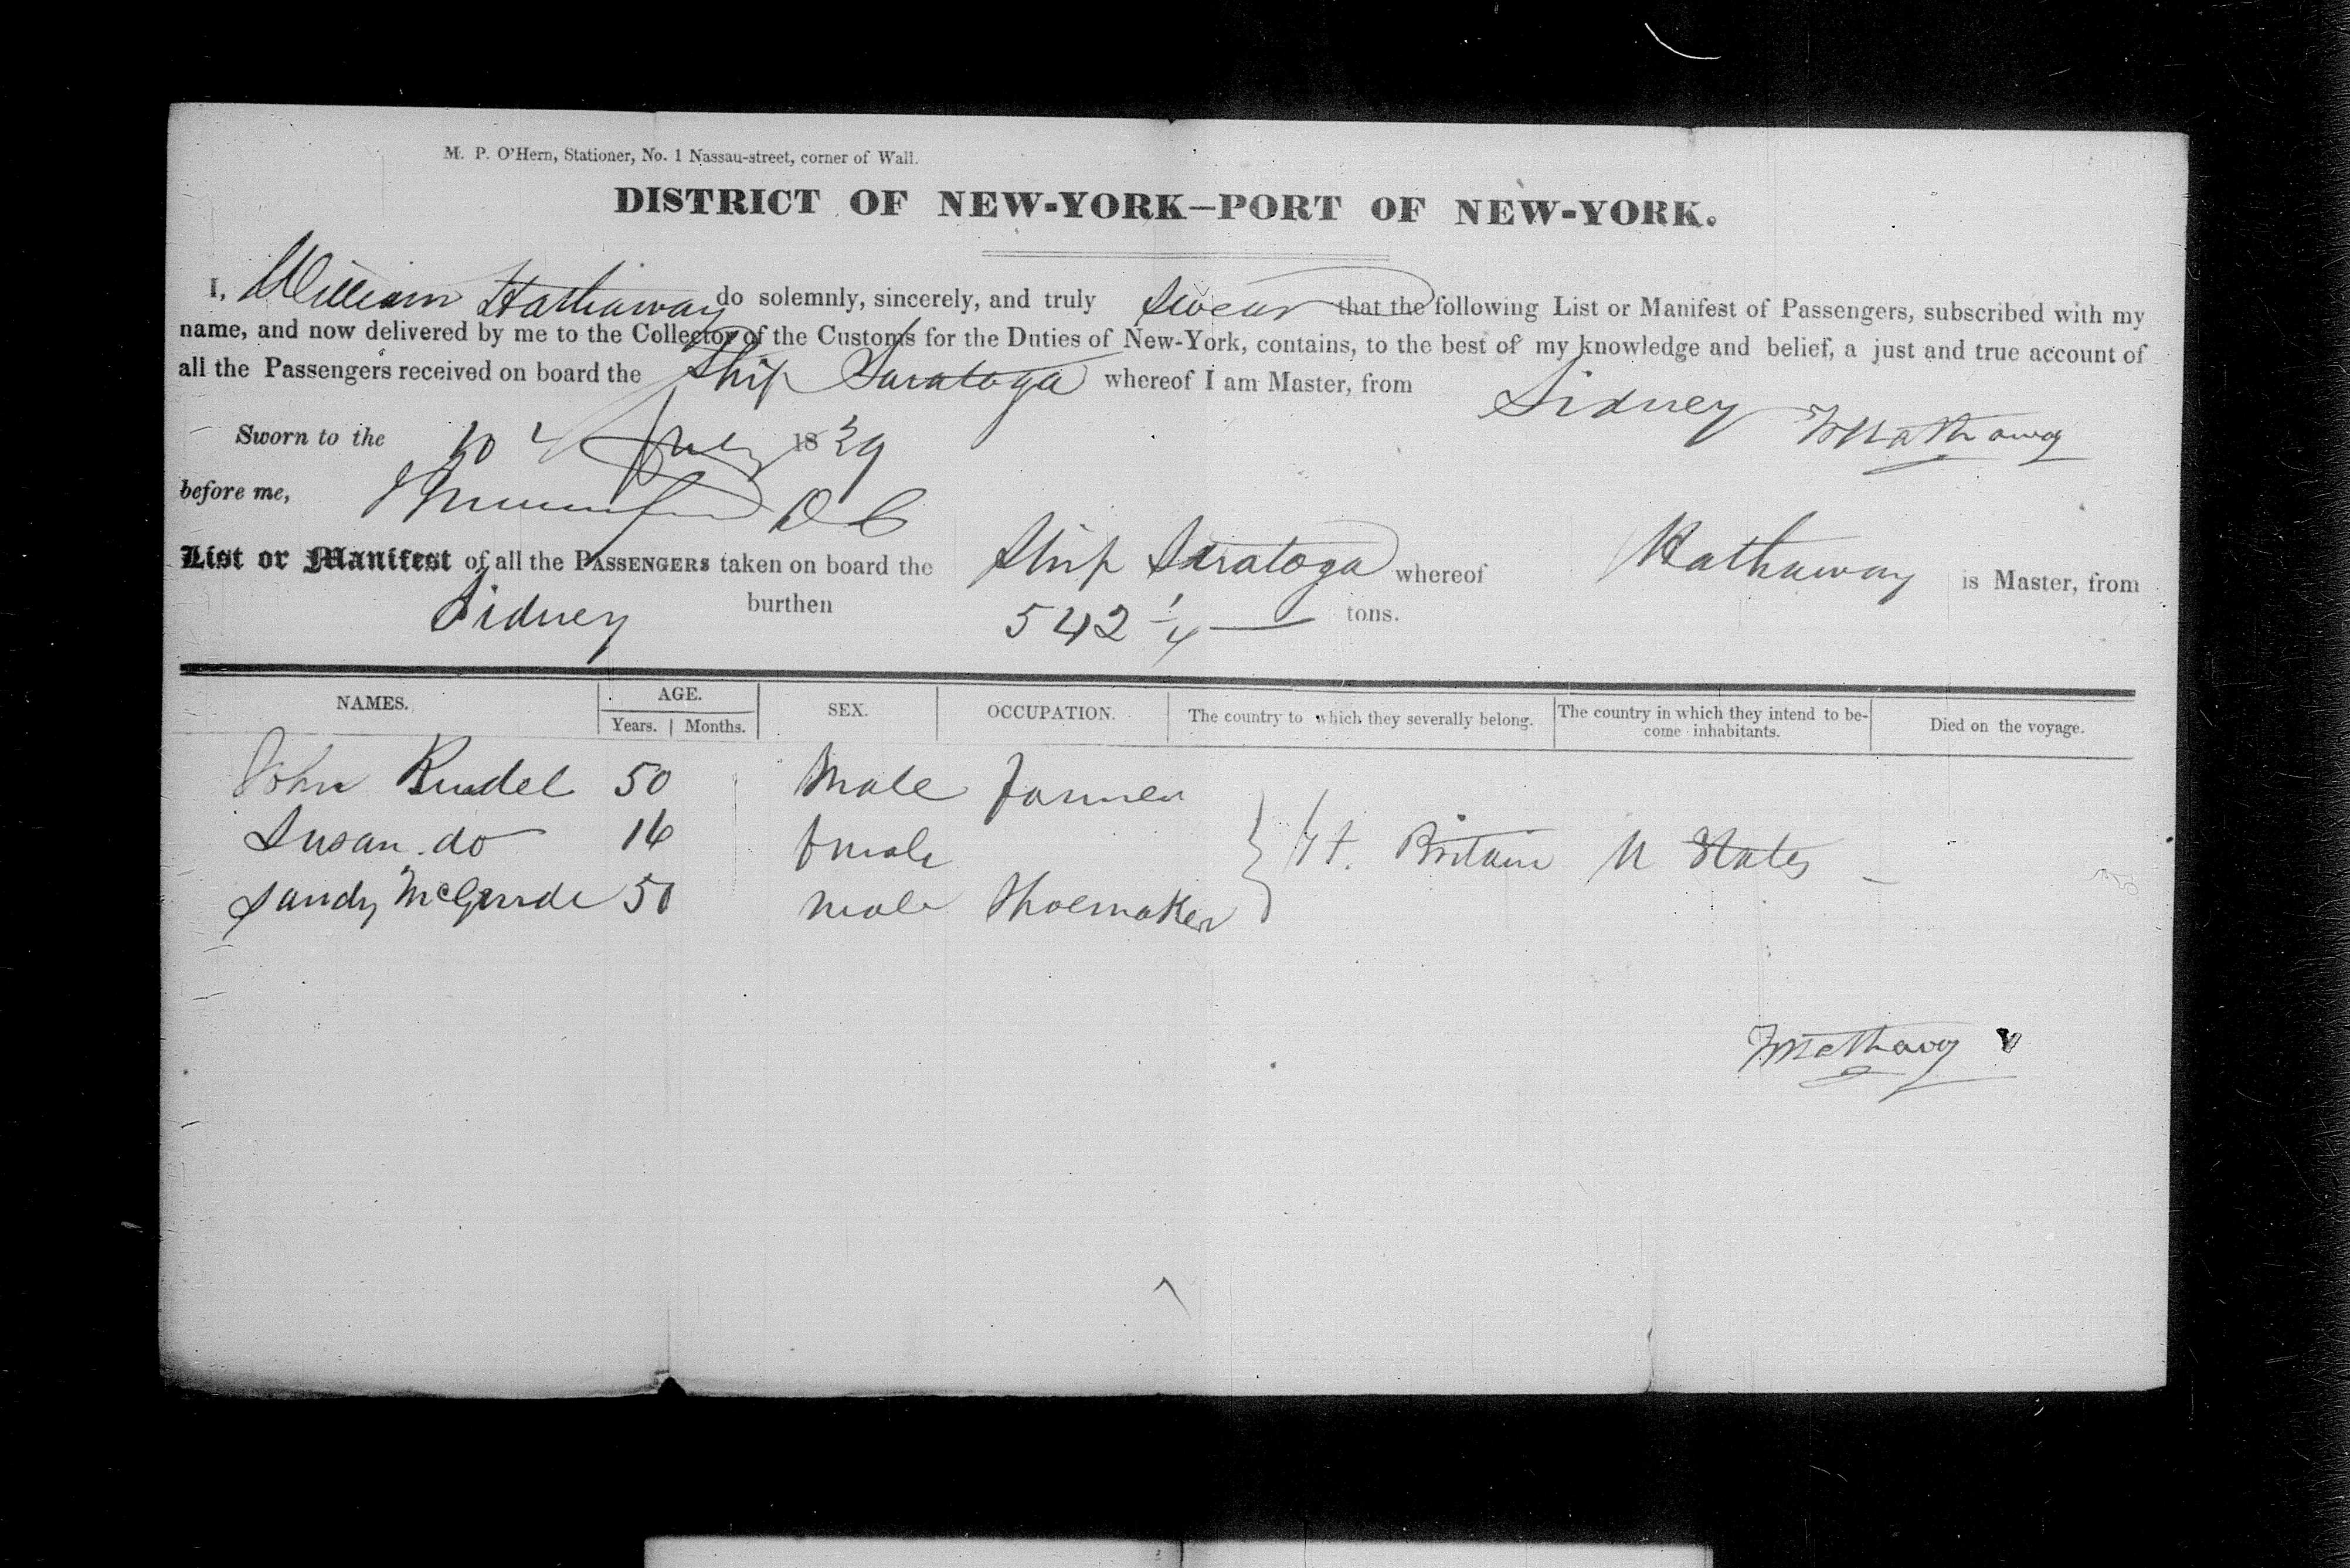 M. P. O'Hern, Stationer, No. 1 Nassau-street, corner of Wall.
DISTRICT OF NEW-YORK—PORT OF NEW-YORK.
I, William Hathaway do solemnly, sincerely, and truly swear that the following List or Manifest of Passengers, subscribed with my
name, and now delivered by me to the Collector of the Customs for the Duties of New-York, contains, to the best of my knowledge and belief, a just and true account of
all the Passengers received on board the Ship Saratoga whereof I am Master, from Sidney
W Hathaway
Sworn to the 10 July 1839
before me, D C
List or Manifest of all the PASSENGERS taken on board the Ship Saratoga whereof Hathaway is Master, from
Sidney burthen 542 1/4 tons.
NAMES. AGE. SEX. OCCUPATION. The country to which they severally belong. The country in which they intend to be- Died on the voyage.
Years. Months. come inhabitants.
John 50 Male farmer
Susan do 16 fmale Gt. Britain U States —
Sandy 50 male Shoemaker
W Hathaway